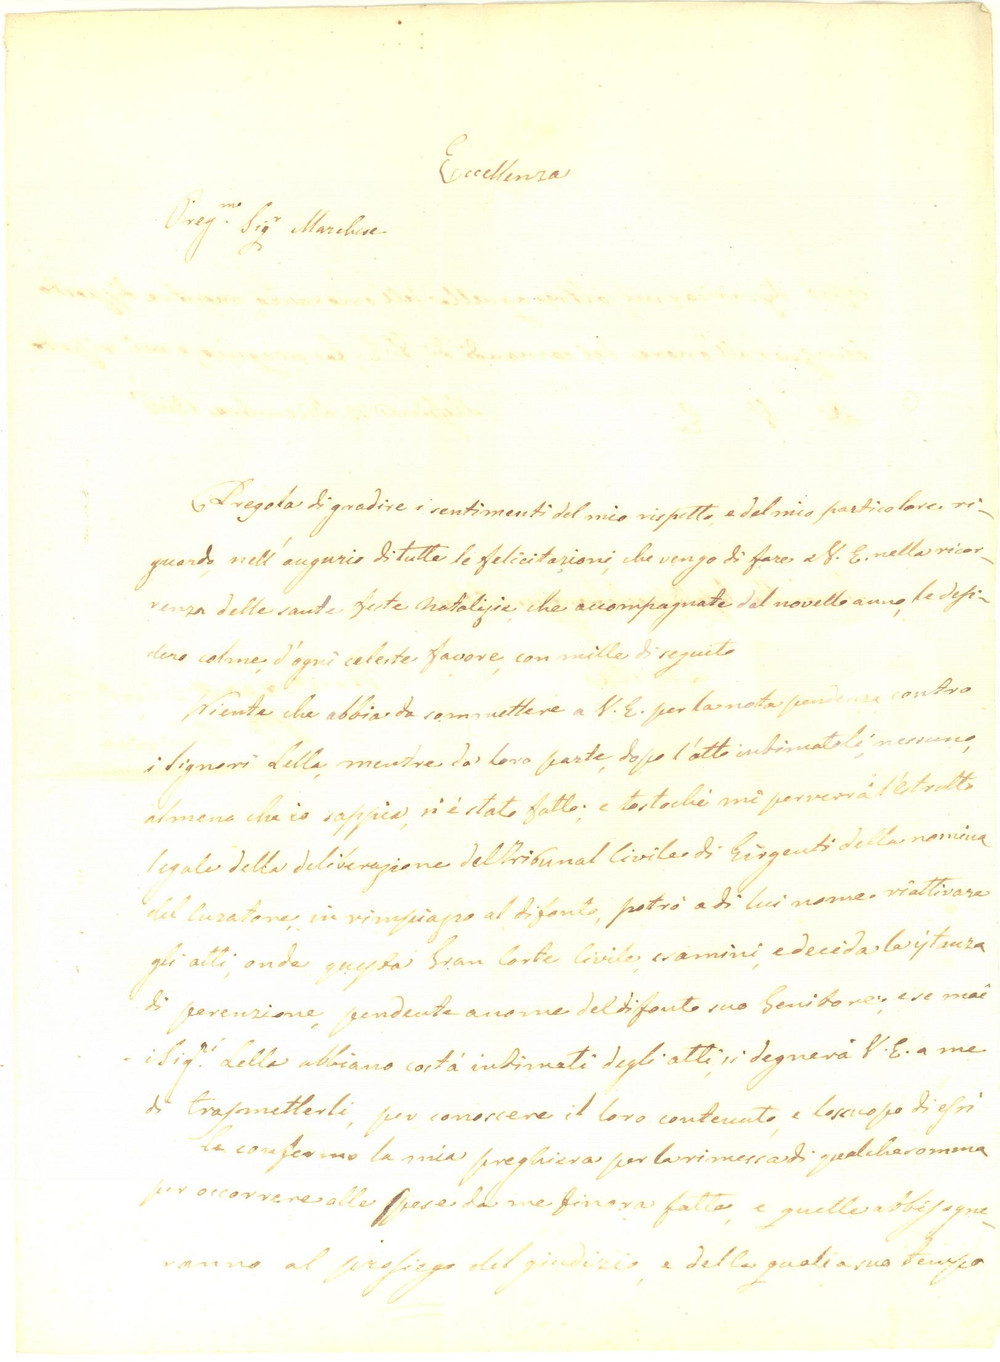 Eccellenza
Preg.mo Sigr Marchese
Pregola di gradire i sentimenti del mio rispetto, e del mio particolare ri-
guardo, nell'augurio di tutte le felicitazioni, che vengo di fare a V. E. nella ricor-
renza delle sante feste natalizie, che accompagnate dal novello anno, le desi-
dero colme, d'ogni celeste favore, con mille di seguito
Niente che abbia da sommettere a V. E. per la nota pendenza contro
i Signori Lella, mentre da loro parte, dopo l'atto intimatole, nessuno,
almeno che io sappia, n'è stato fatto; e tostochè mi perverrà l'Estratto
legale della deliberazione del Tribunal Civile di Girgenti della nomina
del Curatore, in rimpiazzo al difonto, potrò a di lui nome riattivare
gli atti, onde questa Gran Corte Civile, esamini, e decida la istanza
di perenzione, pendente a nome del difonto suo Genitore; e se mai
i Sigri Lella abbiano costà intimati degli atti, si degnerà V. E. a me
di trasmetterli, per conoscere il loro contenuto, e lo scopo di essi
Le confermo la mia preghiera per la rimessa di qualche somma
per occorrere alle spese da me finora fatte, e quelle abbisogne-
ranno al prosieguo del giudizio, e delle quali a suo tempo